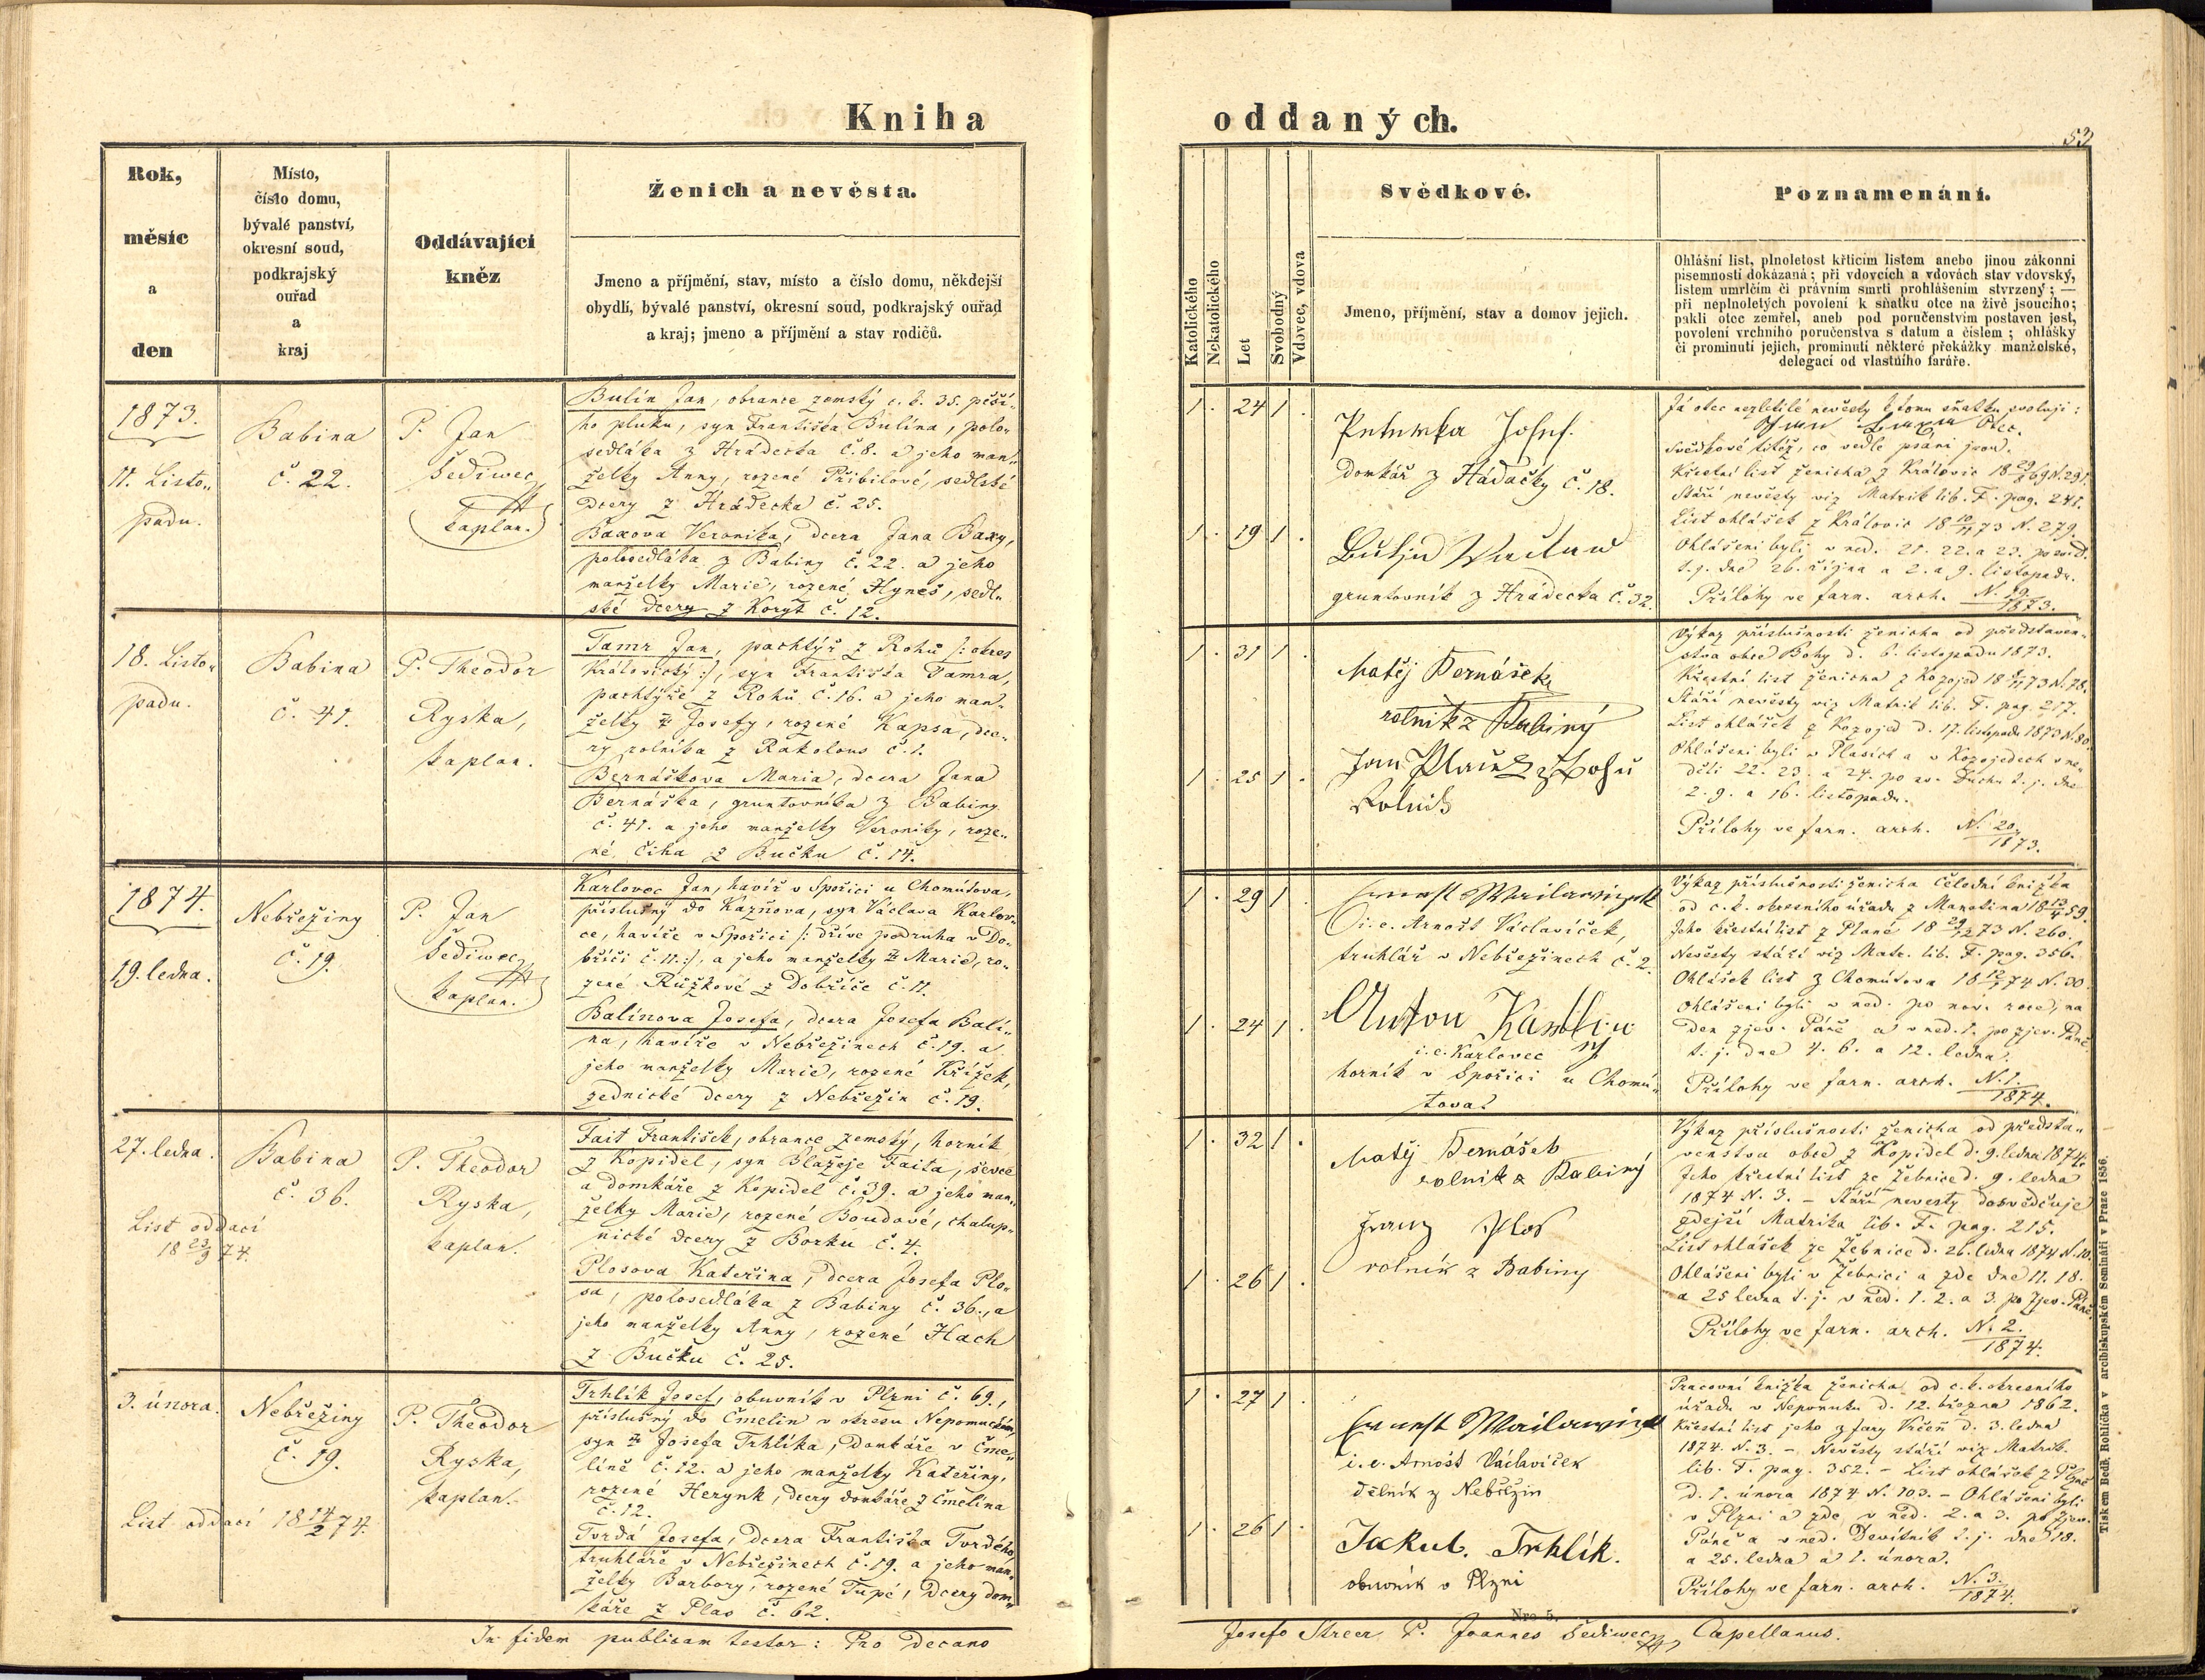 Kniha
oddaných.
53
Rok,
měsíc
a
den
Místo,
číslo domu,
bývalé panství,
okresní soud,
podkrajský
ouřad
a
kraj
Oddávající
kněz
Ženich a nevěsta.
Jmeno a příjmění, stav, místo a číslo domu, někdejší
obydlí, bývalé panství, okresní soud, podkrajský ouřad
a kraj; jmeno a příjmění a stav rodičů.
Katolického
Nekatolického
Let
Svobodný
Vdovec, vdova
Svědkové.
Jmeno, příjmění, stav a domov jejich.
Poznamenání.
Ohlášní list, plnoletost křticím listem anebo jinou zákonní
písemností dokázaná; při vdovcích a vdovách stav vdovský,
listem umrlčím či právním smrti prohlášením stvrzený; —
při neplnoletých povolení k sňatku otce na živě jsoucího;
pakli otec zemřel, aneb pod poručenstvím postaven jest,
povolení vrchního poručenstva s datum a číslem; ohlášky
či prominutí jejich, prominutí některé překážky manželské,
delegací od vlastního faráře.
1873.
11. Listo„
padu.
Babina
č. 22.
P. Jan
Šediwec,
kaplan.
Bulín Jan, obrance zemský c. k. 35. pěší„
ho pluku, syn Františka Bulína, polo„
sedláka z Hrádecka č. 8. a jeho man„
želky Anny, rozené Přibilové, sedlské
dcery z Hrádecka č. 25.
Baxova Veronika, dcera Jana Baxy,
polosedláka z Babiny č. 22. a jeho
manželky Marie, rozené Hyneš, sedl„
ské dcery z Koryt č. 12.
1. 24 1.
1. 19 1.
Petrowka Josef.
Domkář z Hádačky č. 18.
Václaw
gruntovník z Hrádecka č. 32.
Já otec nezletilé nevěsty k tomu sňatku svoluji:
otec.
Svědkové titéž, co vedle psáni jsou.
Křestní list ženicha z Královic 18 69 N. 291.
Stáří nevěsty viz Matrik lib. F. pag. 241.
List ohlášek z Královic 18 10/11 73 N. 279.
Ohlášeni byli v ned. 21. 22. a 23. po sv. D.
t. j. dne 26. října a 2. a 9. listopadu.
Přílohy ve farn. arch. N. 19/1873.
18. Listo„
padu.
Babina
č. 41.
P. Theodor
Ryska,
kaplan.
Tamr Jan, pachtýř z Rohů /: okres
Královický :/, syn Františka Tamra,
pachtýře z Rohů č. 16. a jeho man„
želky ✝ Josefy, rozené Kapsa, dce„
ry rolníka z Rakolous č. 1.
Bernáškova Maria, dcera Jana
Bernáška, gruntovníka z Babiny
č. 41. a jeho manželky Veroniky, roze„
né Čiha z Bučku č. 14.
1. 31 1.
1. 25 1.
Matěj Bernášek
rolník z Babiny
Jan z Rohů
Rolník
Výkaz příslušnosti ženicha od představen„
stva obce Bohy d. 6. listopadu 1873.
Křestní list ženicha z Kozojed 18 73 N. 78.
Stáří nevěsty viz Matrik lib. F. pag. 217.
List ohlášek z Kozojed d. 17. listopadu 1873 N. 80.
Ohlášeni byli v Plasích a v Kozojedech v ne„
děli 22. 23. a 24. po sv. Duchu t. j. dne
2. 9. a 16. listopadu.
Přílohy ve farn. arch. N. 20/1873.
1874.
19. ledna.
Nebřeziny
č. 19.
P. Jan
Šediwec,
kaplan.
Karlovec Jan, havíř v Spořici u Chomútova,
příslušný do Kazňova, syn Václava Karlov„
ce, havíře v Spořici /: dříve podruha v Do„
bříči č. 11. :/, a jeho manželky ✝ Marie, ro„
zené Růžkové z Dobříče č. 11.
Balínova Josefa, dcera Josefa Balí„
na, havíře v Nebřezinech č. 19. a
jeho manželky Marie, rozené Křížek,
zednické dcery z Nebřezin č. 19.
1. 29 1
1. 24 1.
/i. e. Arnošt Václavíček,
truhlář v Nebřezinech č. 2.
Anton
i. e. Karlovec
horník v Spořici u Chomú„
tova.
Výkaz příslušnosti ženicha čelední knížka
od c. k. okresního úřadu z Manetína 18 13/4 59.
Jeho křestní list z Plané 18 73 N. 260.
Nevěsty stáří viz Matr. lib. F. pag. 356.
Ohlášek list z Chomútova 18 74 N. 30.
Ohlášeni byli v ned. po nov. roce, na
den zjev. Páně a v ned. 1. po zjev. Páně.
t. j. dne 4. 6. a 12. ledna.
Přílohy ve farn. arch. N. 1./1874.
27. ledna.
Babina
č. 36.
List oddací
18 23/9 74.
P. Theodor
Ryska,
kaplan.
Fait František, obrance zemský, horník
z Kopidel, syn Blažeje Faita, ševce
a domkáře z Kopidel č. 39. a jeho man„
želky Marie, rozené Boudové, chalup„
nické dcery z Borku č. 4.
Plosova Kateřina, dcera Josefa Plo„
sa, polosedláka z Babiny č. 36., a
jeho manželky Anny, rozené Hach
z Bučku č. 25.
1. 32 1.
1. 26 1.
Matěj Bernášek
rolník z Babiny
Franz Plos
rolník z Babiny
Výkaz příslušnosti ženicha od předsta„
venstva obce z Kopidel d. 9. ledna 1874.
Jeho křestní list ze Žebnice d. 9. ledna
1874 N. 3. – Stáří nevěsty dosvědčuje
zdejší Matrika lib. F. pag. 215.
List ohlášek ze Žebnice d. 26. ledna 1874 N. 10.
Ohlášeni byli v Žebnici a zde dne 11. 18.
a 25 ledna t. j. v ned. 1. 2. a 3. po Zjev. Páně.
Přílohy ve farn. arch. N. 2./1874.
3. února.
Nebřeziny
č. 19.
List oddací 18 14/2 74.
P. Theodor
Ryska,
kaplan.
Trhlík Josef, obuvník v Plzni č. 69.,
příslušný do Čmelín v okresu Nepomuckém,
syn ✝ Josefa Trhlíka, domkáře v Čme„
líně č. 12. a jeho manželky Kateřiny,
rozené Herynk, dcery domkáře z Čmelína
č. 12.
Tvrdá Josefa, dcera Františka Tvrdého,
truhláře v Nebřezinech č. 19. a jeho man„
želky Barbory, rozené Tupé, dcery dom„
káře z Plas č. 62.
1. 27 1
1. 26 1.
i. e. Arnošt Václavíček
dělník z Nebřezin
Jakub. Trhlík.
obuvník v Plzni
Pracovní knížka ženicha od c. k. okresního
úřadu v Nepomuku d. 12. března 1862.
Křestní list jeho z fary Vrčeň d. 3. ledna
1874. N. 3. – Nevěsty stáří viz Matrik.
lib. F. pag. 352. – List ohlášek z Plzně
d. 1. února 1874 N. 103. – Ohlášeni byli
v Plzni a zde v ned. 2. a 3. po Zjev.
Páně a v ned. Devítník t. j. dne 18.
a 25. ledna a 1. února.
Přílohy ve farn. arch. N. 3./1874.
Tiskem Bedř. Rohlíčka v arcibiskupském Semináři v Praze 1856.
Nro 5.
In fidem publicam testor: Pro Decano
Josefo Streer P. Joannes Šediwec, Capellanus.